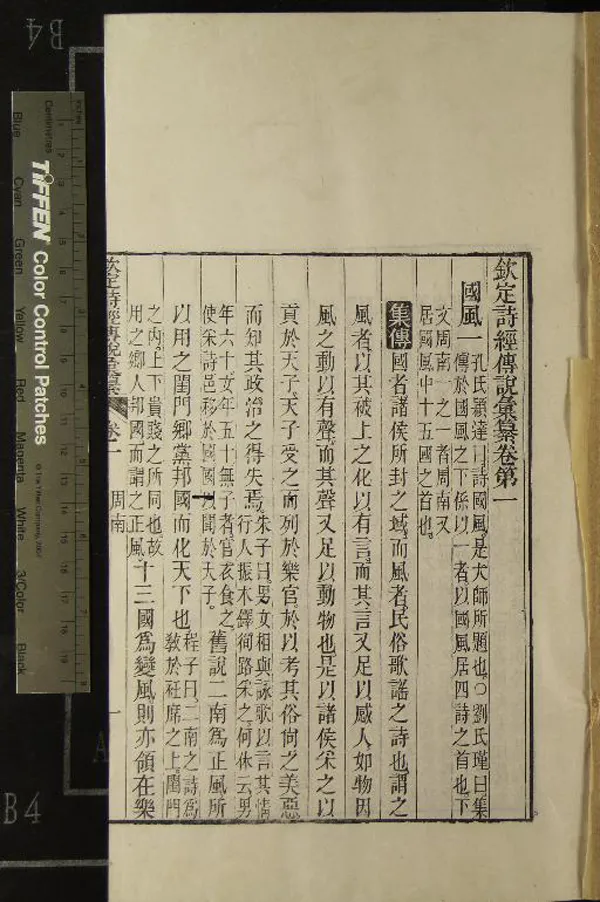 欽定詩經傳說彙纂卷第一
國風一
孔氏穎達曰詩國風是大師所題也○劉氏瑾曰集
傳於國風之下係以一者以國風居四詩之首也下
文周南一之一者周南又
居國風中十五國之首也
集傳
國者諸侯所封之域而風者民俗歌謠之詩也謂之
風者以其被上之化以有言而其言又足以感人如物因
風之動以有聲而其聲又足以動物也是以諸侯采之以
貢於天子天子受之而列於樂官於以考其俗尚之美惡
而知其政治之得失焉
朱子曰男女相與詠歌以言其情
行人振木鐸徇路采之何休云男
年六十女年五十無子者官衣食之
使采詩邑移於國國以聞於天子
舊說二南為正風所
以用之閨門鄉黨邦國而化天下也
程子曰二南之詩為
教於衽席之上閨門
之內上下貴賤之所同也故
用之鄉人邦國而謂之正風
十三國為變風則亦領在樂
欽定詩經傳說彙纂
卷一
周南
一
TIFFEN Color Control Patches
© The Tiffen Company, 2007
Centimetres
Inches
Blue
Cyan
Green
Yellow
Red
Magenta
White
3/Color
Black
B4
B4
A